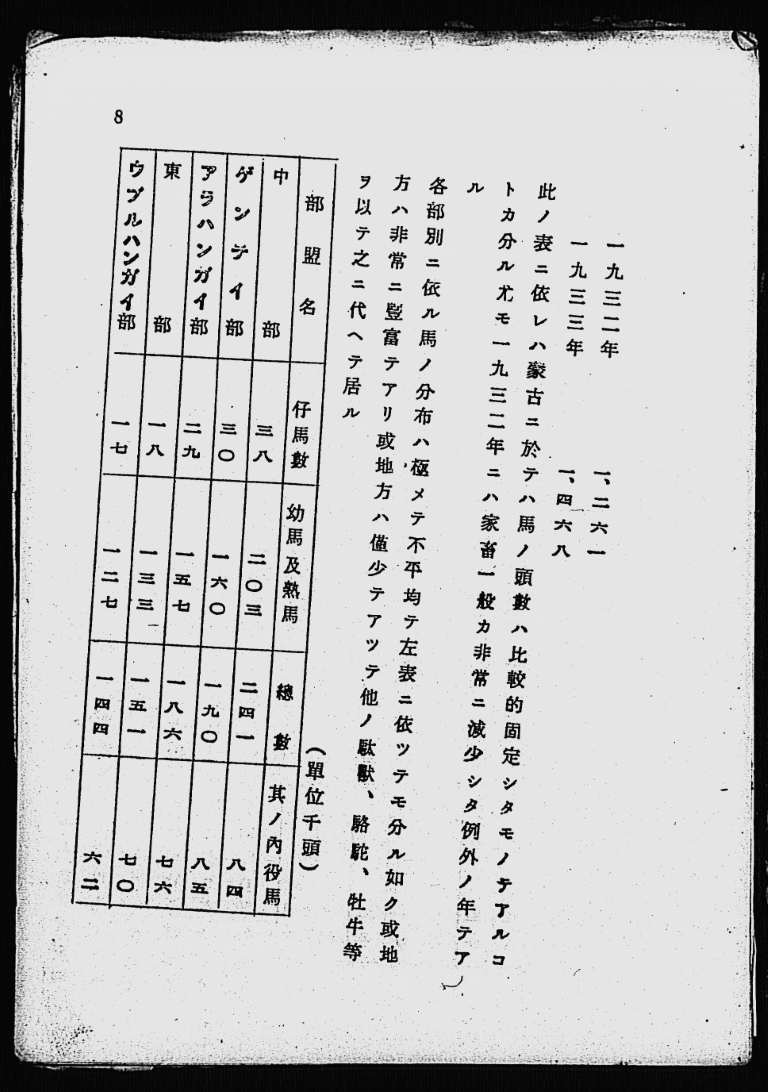 一九三二年　　　一、二六一
一九三三年　　　一、四六八
此ノ表ニ依レハ蒙古ニ於テハ馬ノ頭數ハ比較的固定シタモノテアルコ
トカ分ル尤モ一九三二年ニハ家畜一般カ非常ニ減少シタ例外ノ年テア
ル
各部別ニ依ル馬ノ分布ハ極メテ不平均テ左表ニ依ツテモ分ル如ク或地
方ハ非常ニ豐富テアリ或地方ハ僅少テアツテ他ノ駄獸、駱駝、牡牛等
ヲ以テ之ニ代ヘテ居ル
（單位千頭）
部盟名　仔馬數　幼馬及熟馬　總數　其ノ內役馬
中部　三八　二〇三　二四一　八四
ゲンテイ部　三〇　一六〇　一九〇　八五
アラハンガイ部　二九　一五七　一八六　七六
東部　一八　一三三　一五一　七〇
ウブルハンガイ部　一七　一二七　一四四　六二
8